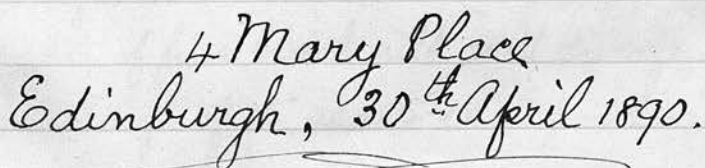 4 Mary Place
Edinburgh, 30th April 1890.